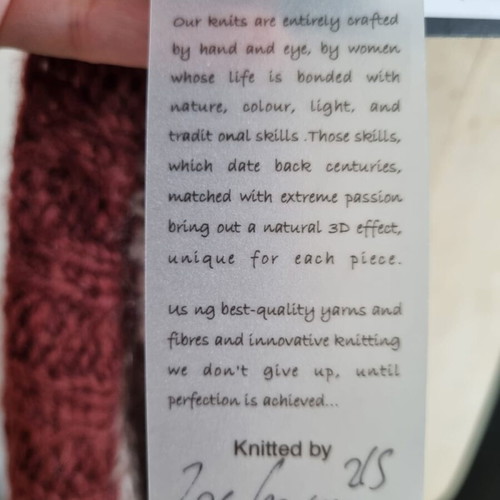 Our knits are entirely crafted
by hand and eye, by women
whose life is bonded with
nature, colour, light, and
tradit onal skills .Those skills,
which date back centuries,
matched with extreme passion
bring out a natural 3D effect,
unique for each piece.
us ng best-quality yarns and
fibres and innovative knitting
we don't give up, until
perfection is achieved...
Knitted by